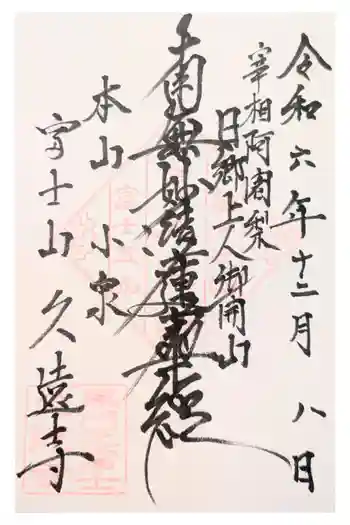 令和六年十二月八日
宰相阿闍梨
日郷上人御開山
南無妙法蓮華経
本山小泉
富士山久遠寺